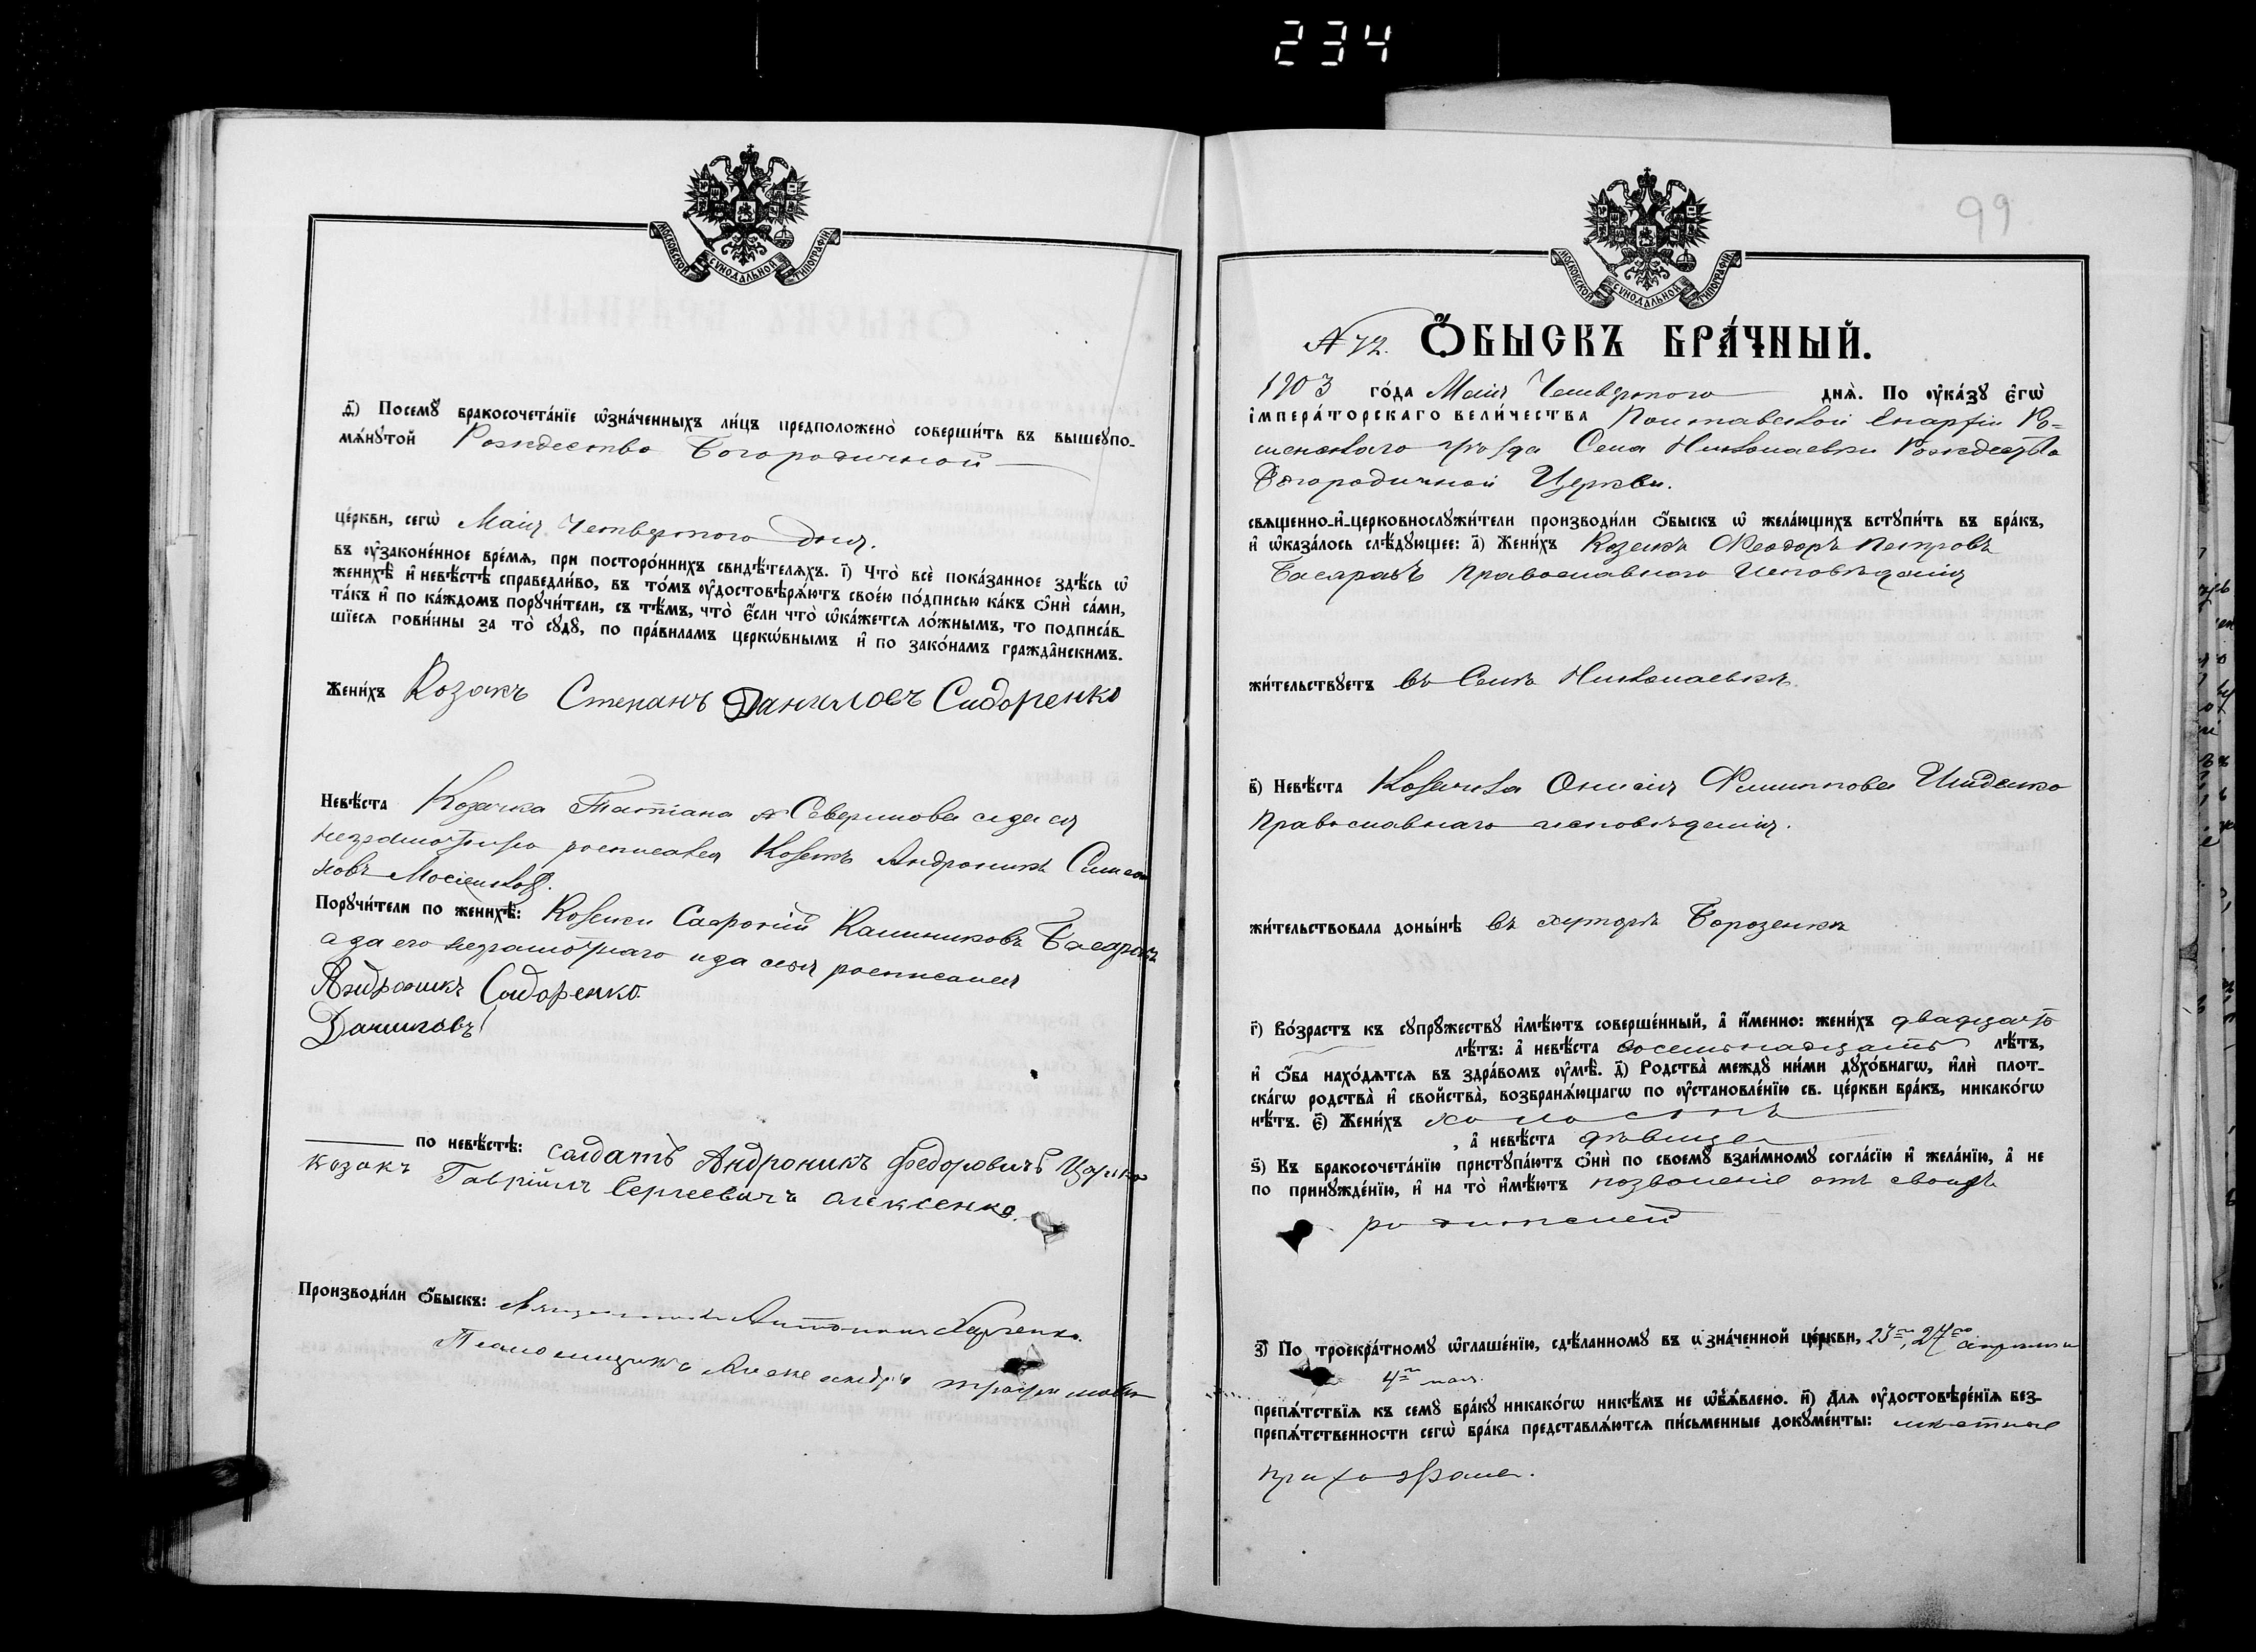 234
МОСКОВСКОЙ СѴНОДАЛЬНОЙ ТИПОГРАФІИ
д҃і) Посемꙋ̀ бракосочета́нїе ѡ҆зна́ченныхъ ли́цъ предположено̀ соверши́ть въ вышеꙋпо-
мѧ́нꙋтой Рождество Богородичной
це́ркви, сегѡ̀ Маія Четвертого дня.
въ ᲂу҆законе́нное вре́мѧ, при посторо́ннихъ свидѣ́телѧхъ. і҃) Что̀ всѐ пока́занное здѣ́сь ѡ҆
женихѣ̀ и҆ невѣ́стѣ справедли́во, въ то́мъ ᲂу҆достовѣрѧ́ютъ свое́ю по́дписью ка́къ ѻ҆нѝ са́ми,
та́къ и҆ по ка́ждомъ порꙋчи́тели, съ тѣ́мъ, что̀ є҆́сли что̀ ѡ҆ка́жетсѧ ло́жнымъ, то подписа́в-
шїесѧ пови́нны за то̀ сꙋдꙋ̀, по пра́виламъ церкѡ́внымъ и҆ по зако́намъ гражда̑нскимъ.
Жени́хъ Козакъ Степанъ Даниловъ Сидоренко
Невѣ́ста Козачка Татіана Северинова а за ея
неграмотную росписался Козакъ Андроникъ Симео
новъ
Порꙋчи́тели по женихѣ̀: Козаки Сафроній Калиниковъ Басарабъ
а за его неграмотнаго и за себя росписался
Андроникъ Сидоренко
Даниловъ
по невѣ́стѣ: солдатъ Андроникъ Федоровичъ
козакъ Гавріилъ Сергеевичъ Алексенко.
Производи́ли ѻ҆́быскъ: Священникъ Антоній Харченко.
Псаломщикъ Александръ
99
МОСКОВСКОЙ СѴНОДАЛЬНОЙ ТИПОГРАФІИ
№ 72. Ѻ҆́БЫСКЪ БРА́ЧНЫЙ.
1903 го́да Маія Четвертого днѧ̀. По ᲂу҆ка́зꙋ є҆гѡ̀
і҆мпера́торскаго вели́чества Полтавской Епархіи Ро=
менского уѣзда Села Николаевки Рождество
Богородичной Церкви.
свѧщенно-и҆-церковнослꙋжи́тели производи́ли ѻ҆́быскъ ѡ҆ жела́ющихъ встꙋпи́ть въ бра́къ,
и҆ ѡ҆каза́лось слѣ́дꙋющее: а҃) Жени́хъ Козакъ Ѳеодоръ Петровъ
Басарабъ Православного Исповѣданія
жи́тельствꙋетъ въ Селѣ Николаевкѣ.
в҃) Невѣ́ста Козачка Онисія Филиппова
Православнаго исповѣданія.
жи́тельствовала доны́нѣ въ хуторѣ Борозенкѣ
г҃) Во́зрастъ къ сꙋпрꙋжествꙋ и҆мѣ́ютъ соверше́нный, а҆ и҆́менно: жени́хъ двадцать
лѣ́тъ: а҆ невѣ́ста восемнадцать лѣ́тъ,
и҆ ѻ҆́ба нахо́дѧтсѧ въ здра́вомъ ᲂу҆мѣ̀. д҃) Родства̀ междꙋ̀ ни́ми дꙋхо́внагѡ, и҆лѝ плот-
ска́гѡ родства̀ и҆ свойства̀, возбранѧ́ющагѡ по ᲂу҆становле́нїю св. це́ркви бра́къ, никако́гѡ
нѣ́тъ. є҃) Жени́хъ холостъ
, а҆ невѣ́ста дѣвица
ѕ҃) Къ бракосочета́нїю пристꙋпа́ютъ ѻ҆нѝ по своемꙋ̀ взаи́мномꙋ согла́сїю и҆ жела́нїю, а҆ не
по принꙋжде́нїю, и҆ на то̀ и҆мѣ́ютъ позволеніе отъ своихъ
родителей
з҃) По троекра́тномꙋ ѡ҆глаше́нїю, сдѣ́ланномꙋ въ ѡ҆зна́ченной це́ркви, 23го, 27го апрѣля и
4го мая.
препѧ́тствїѧ къ семꙋ̀ бра́кꙋ никако́гѡ никѣ́мъ не ѡ҆б̾ѧ́влено. и҃) Длѧ̀ ᲂу҆достовѣре́нїѧ без-
препѧ́тственности сегѡ̀ бра́ка представлѧ́ютсѧ пи́сьменные докꙋме́нты: мѣстные
прихожане.